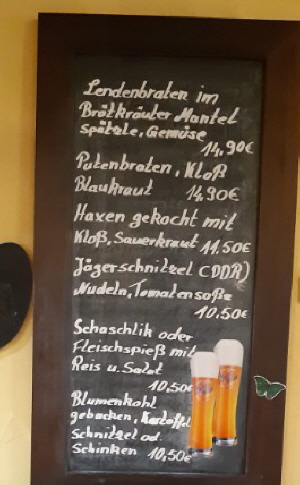 Lendenbraten im
Brätkräuter Mantel
Spätzle, Gemüse
14,90€
Putenbraten, Kloß
Blaukraut 14,90€
Haxen gekocht mit
Kloß, Sauerkraut 11.50€
Jägerschnitzel (DDR)
Nudeln, Tomatensoße
10,50€
Schaschlik oder
Fleischspieß mit
Reis u. Salat
10,50€
Blumenkohl
gebacken, Kartoffel
Schnitzel od.
Schinken 10,50€